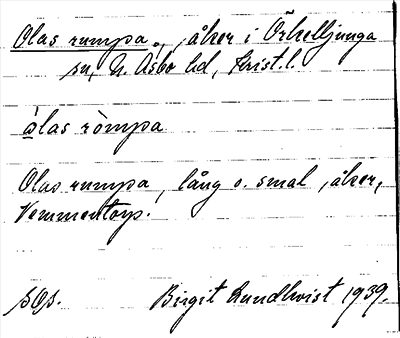 Olas rumpa, åker i Örkelljunga
sn, N. Åsbo hd, Krist. l.
ò̱las ròmpa
Olas rumpa, lång o. smal åker,
Vemmentorp.
Birgit Lundkvist 1939.